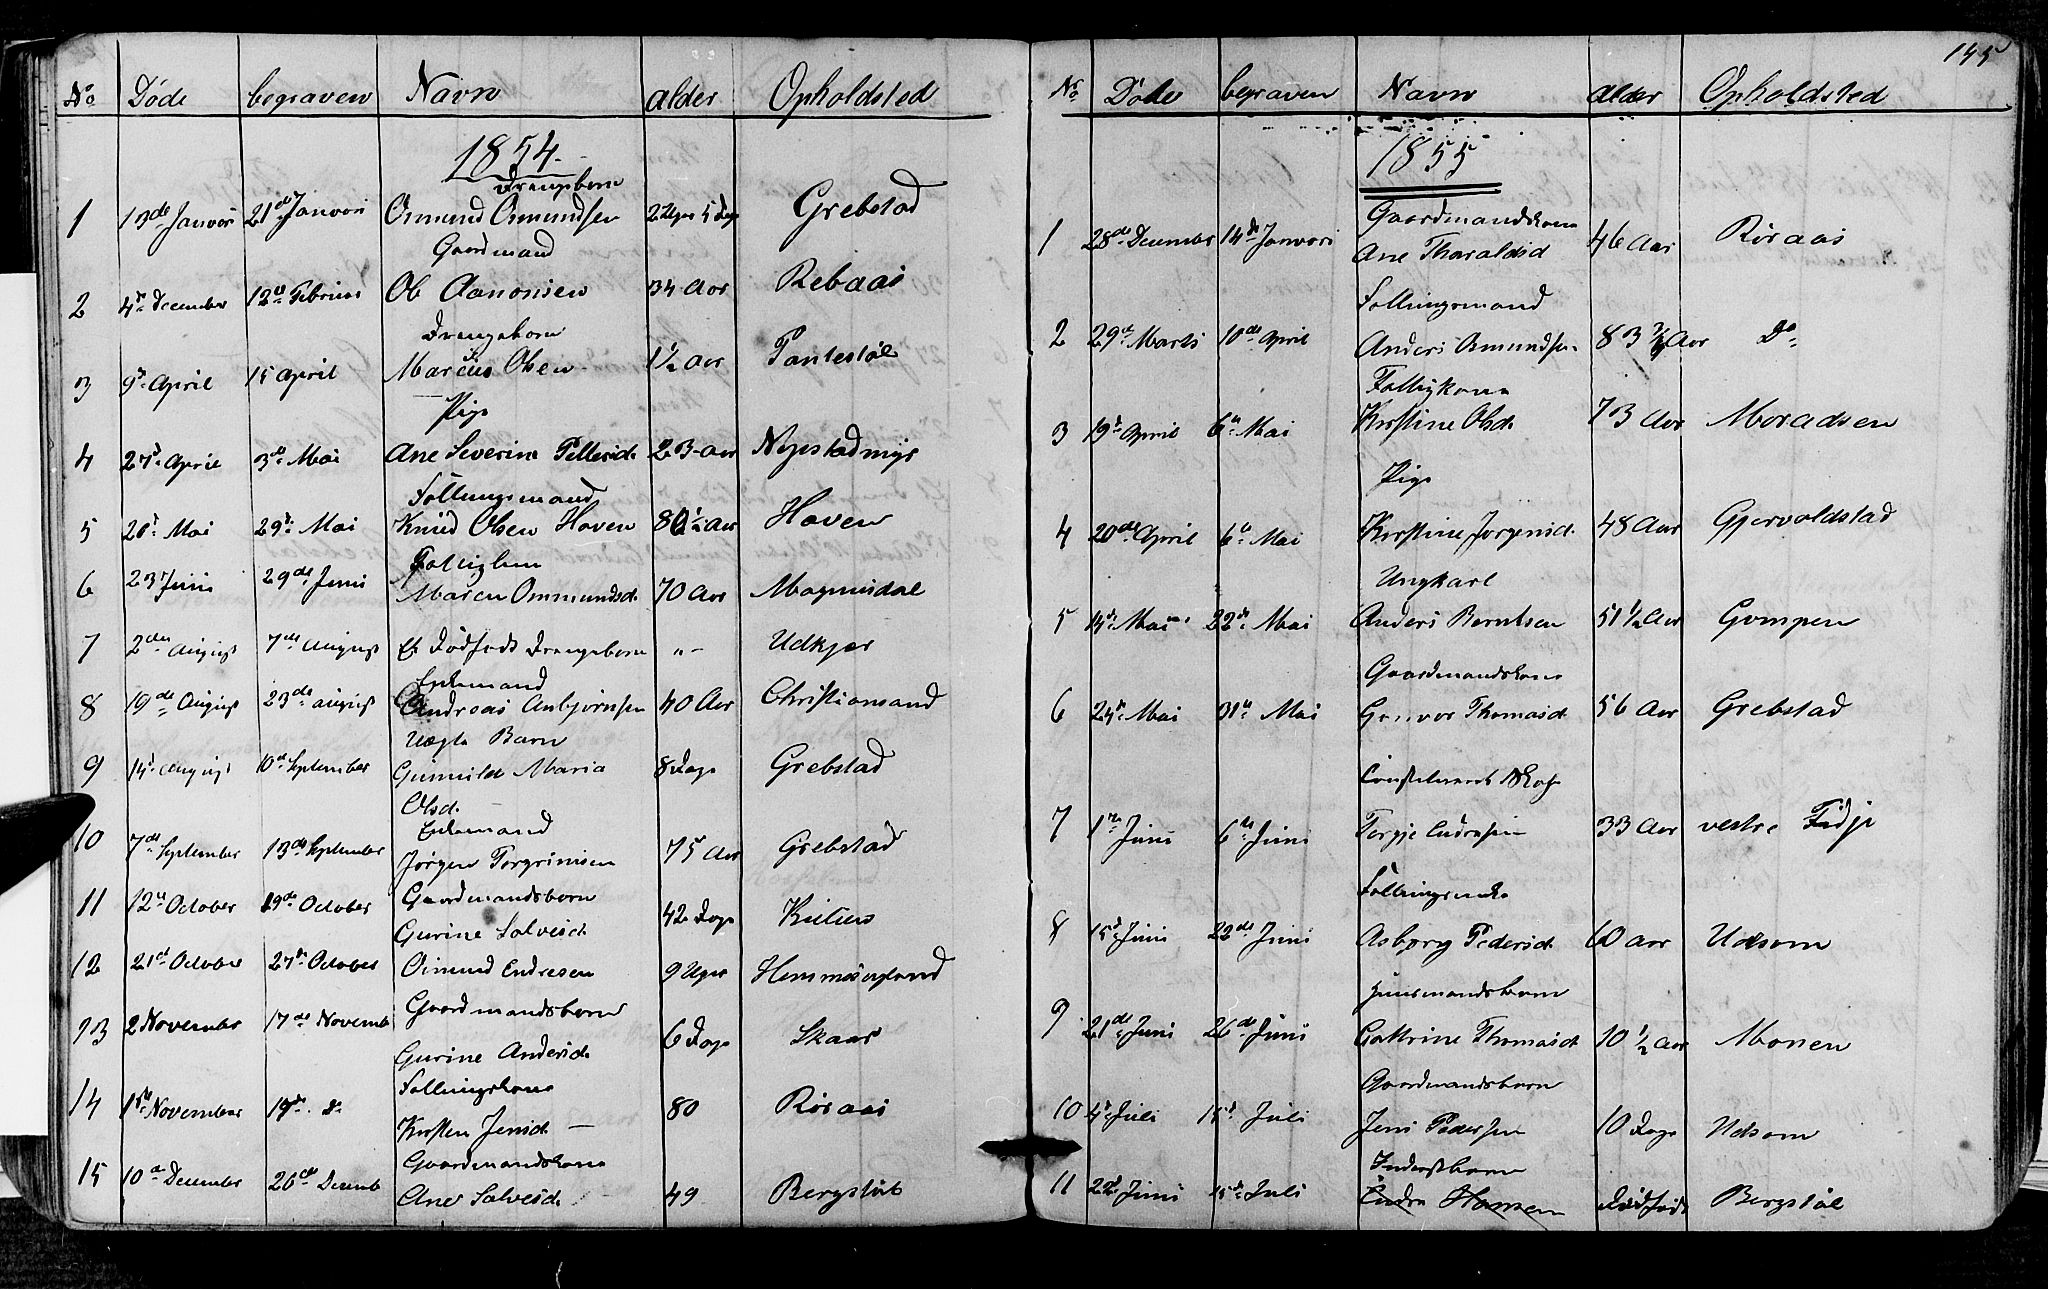 No Døde begraven Navn alder Opholdsted
1854
Drengebarn
1 13de Januar 21de Januar Osmund Osmundsen 2 Uger 5 Dage Grebstad
Gaardmand
2 4de December 12te Februar Ole Aanonsen 34 Aar Rebaas
Drengebarn
3 9de April 15 April Marcus Olsen 1½ Aar
Pige
4 27de April 3de Mai Ane Severine Pettersd. 23 Aar Nyestadmyr
Føllingsmand
5 29de Mai Knud Olsen Hoven Aar Hoven
6 23 Juni 29de Juni Maren Ommundsd. 70 Aar Magnusdal
7 2den August 7de August Et Dødfødt Drengebarn "- Udkjær
Enkemand
8 19de August 23de august Andreas Anbjørnsen 40 Aar Christiansand
Uægte Barn
9 14de August 10de September Gunnild Maria 8 Dage Grebstad
Olsd.
Enkemand
10 7de September 13de September Jørgen Torgrimsen 75 Aar Grebstad
11 12te October 19de October Gaardmandsbarn
Gurine Salvesd. 42 Dage
12 21de October 27de October Osmund Endresen 9 Uger
Gaardmandsbarn
13 2 November 17de Novemb
Gurine Andersd. 6 Dage Skaar
Føllingskone
14 15de November 17de Do 80 Røraas
Kirsten Jensd. –
Gaardmandskone
15 10de December 26de Decemb Ane Salvesd. 49 Bergstøl
145
No Døde begraven Navn alder Opholdsted
1855
Gaardmandskone
1 28de December 14de Januari Ane Tharaldsd 46 Aar Røraas
Føllingsmand
2 29de Marts 10de April Anders Omundsen 83 Aar Do
3 19de April 6te Mai Kirstine Olsd. 73 Aar Moradsen
Pige
4 20de April 6te Mai Kirstine Jørgensd. 48 Aar Gjervoldstad
Ungkarl
5 14de Mai 22de Mai Anders Berntsen 51½ Aar Gumpen
Gaardmandskone
6 24de Mai 31te Mai Gunvor Thomasd 56 Aar Grebstad
7 1ste Juni 6te Juni Torgje Endresen 33 Aar vestre Fidje
8 15de Juni 22de Juni Asborg Pedersd. 60 aar Udsom
Huusmandsbarn
9 21de Juni 26de Juni Cathrine Thomasd 10½ Aar Monen
Gaardmandsbarn
10 4de Juli 15de Juli Jens Pedersen 10 Dage Udsom
11 22de Juni 15de Juli Endre Hansen Dødfødt Bergstøl